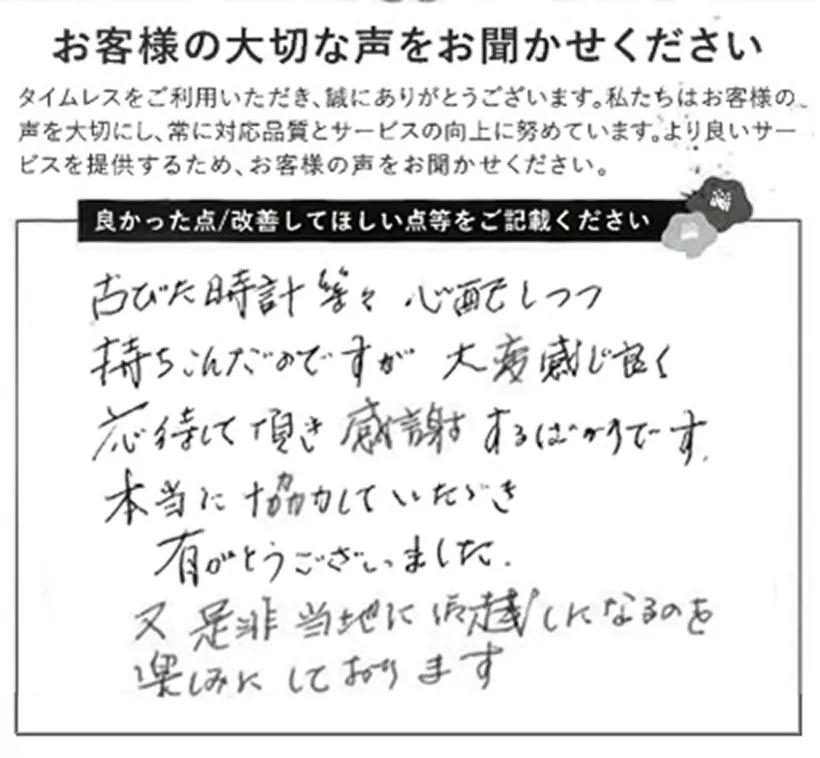 お客様の大切な声をお聞かせください
タイムレスをご利用いただき、誠にありがとうございます。私たちはお客様の
声を大切にし、常に対応品質とサービスの向上に努めています。より良いサー
ビスを提供するため、お客様の声をお聞かせください。
良かった点/改善してほしい点等をご記載ください
古びた時計等々 心配しつつ
持ちこんだのですが 大変感じ良く
応待して頂き 感謝するばかりです。
本当に協力していただき
有がとうございました.
又 是非 当地にお越しになるのを
楽しみにしております